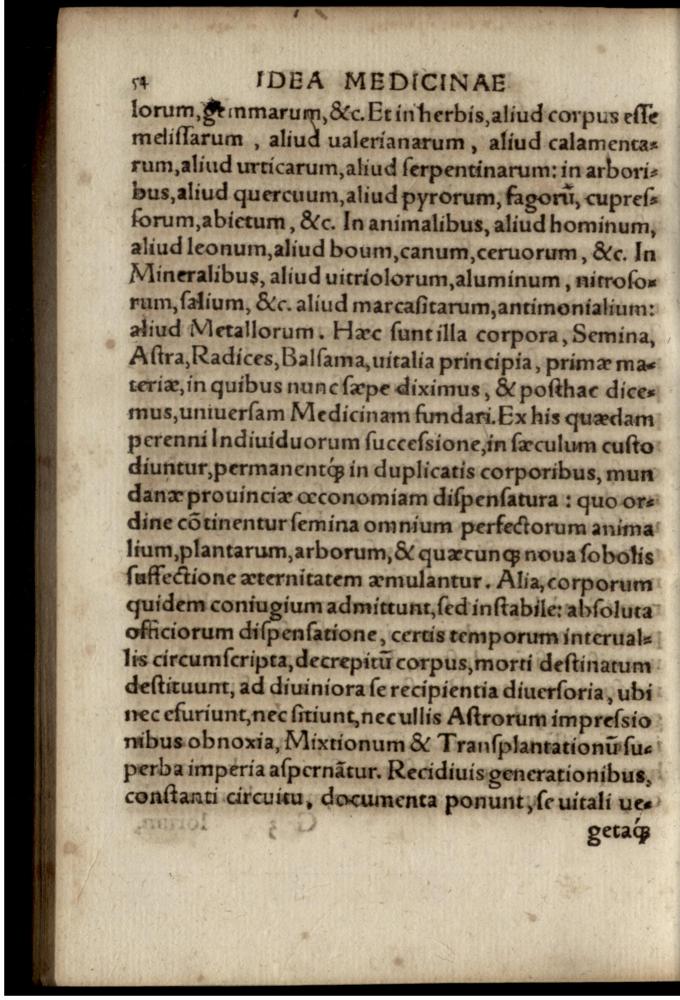 54 IDEA MEDICINAE
lorum, gemmarum, &c. Et in herbis, aliud corpus eſſe
meliſſarum, aliud ualerianarum, aliud calamenta⸗
rum, aliud urticarum, aliud ſerpentinarum: in arbori⸗
bus, aliud quercuum, aliud pyrorum, fagorũ, cupreſ⸗
ſorum, abietum, &c. In animalibus, aliud hominum,
aliud leonum, aliud boum, canum, ceruorum, &c. In
Mineralibus, aliud uitriolorum, aluminum, nitroſo⸗
rum, ſalium, &c. aliud marcaſitarum, antimonialium:
aliud Metallorum. Hæc ſunt illa corpora, Semina,
Aſtra, Radices, Balſama, uitalia principia, primæ ma⸗
teriæ, in quibus nunc ſæpe diximus, & poſthac dice⸗
mus, uniuerſam Medicinam fundari. Ex his quædam
perenni Indiuiduorum ſucceſsione, in ſæculum cuſto
diuntur, permanentq́; in duplicatis corporibus, mun
danæ prouinciæ œconomiam diſpenſatura: quo or⸗
dine cõtinentur ſemina omnium perfectorum anima
lium, plantarum, arborum, & quæcunq; noua ſobolis
ſuffectione æternitatem æmulantur. Alia, corporum
quidem coniugium admittunt, ſed inſtabile: abſoluta
officiorum diſpenſatione, certis temporum interual⸗
lis circumſcripta, decrepitũ corpus, morti deſtinatum
deſtituunt, ad diuiniora ſe recipientia diuerſoria, ubi
nec eſuriunt, nec ſitiunt, nec ullis Aſtrorum impreſsio
nibus obnoxia, Mixtionum & Tranſplantationũ ſu⸗
perba imperia aſpernãtur. Recidiuis generationibus,
conſtanti circuitu, documenta ponunt, ſe uitali ue⸗
getaq́;